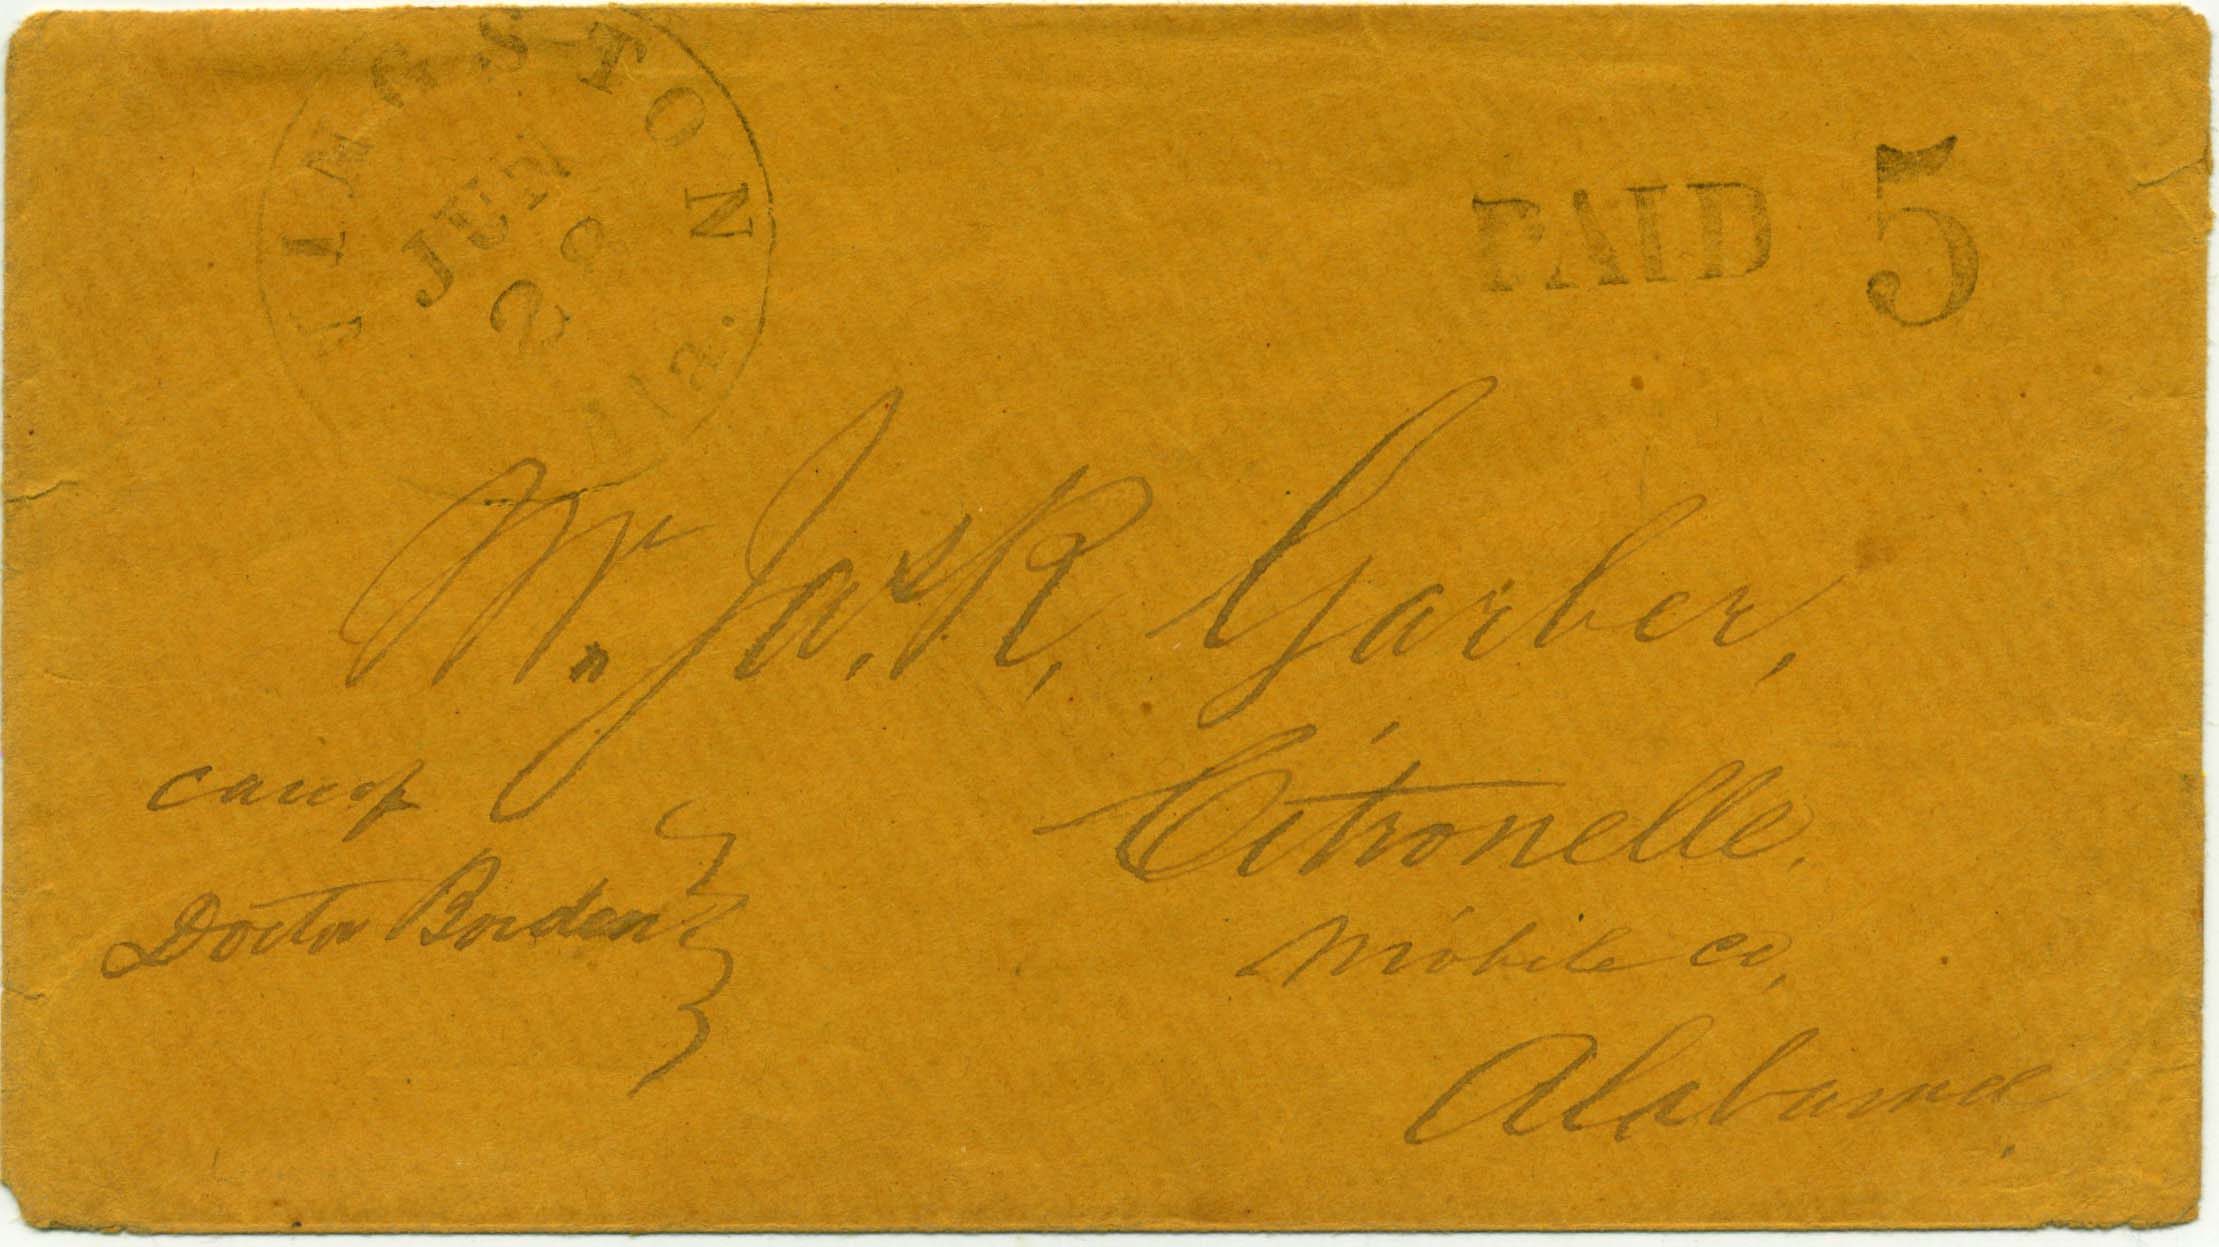 LIVINGSTON
JUN
22
Ala.
PAID 5
Mr. Jas. R. Garber,
Citronelle.
Mobile Co,
Alabama.
camp
Doctor Borden